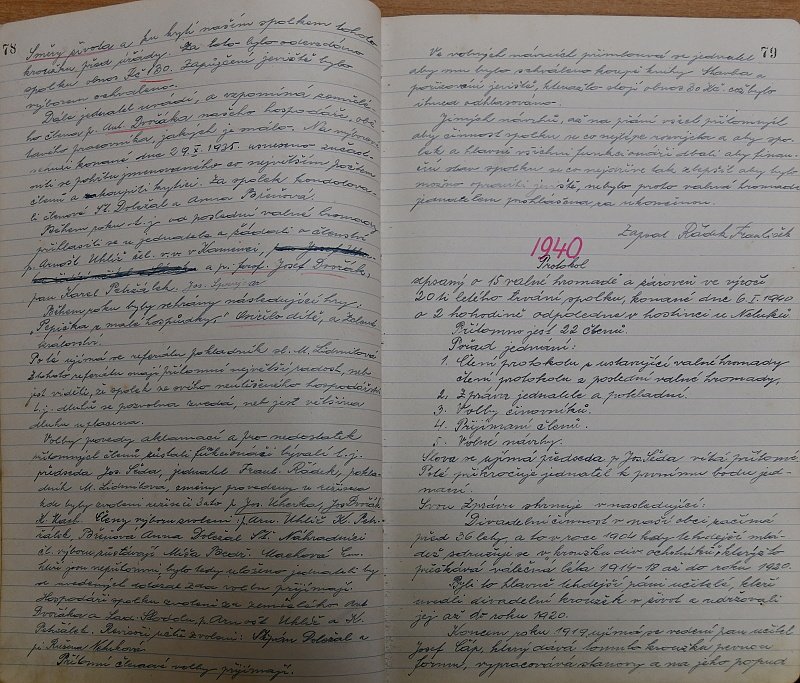 78
Směry svoda a ku krytí našim spolkem tohoto
kroužku před úřady. Za toto bylo odevzdáno
spolku obnos Kč 180. Zapůjčení jeviště bylo
výborem schváleno.
Dále jednatel uvádí, a vzpomíná zemřelé-
ho člena p. Ant. Dvořáka našeho hospodáře, obě-
tavého pracovníka, jakých je málo. Na výborové
schůzi konané dne 29. 1935. usneseno zúčast-
niti se pohřbu jmenovaného co největším počtem
členů a zakoupiti kytici. Za spolek kondolova-
li členové St. Doležal a Anna Břeňová.
Během roku t. j. od poslední valné hromady
přihlásili se u jednatele a žádali o členství
p. Arnošt Uhlíč
a p. prof. Josef Dvořák,
pan Karel Petržálek.
Během roku byly sehrány následující hry.
Pepička z malé hospůdky, Ovčilo dítě, a Zelené
království.
Poté ujímá se referátu pokladník sl. M. Lidmilová
Z tohoto referátu mají přítomní největší radost, neb
jest viděti, že spolek ze svého neutěšeného hospodářství
t. j. dluhů se pozvolna zvedá, neb jest většina
dluhu uplacena.
Volby provedeny aklamací a pro nedostatek
přítomných členů zůstali funkcionáři bývalí t. j.
předseda Jos. Sída, jednatel Frant. Řádek, poklad-
ník M. Lidmilová, změny provedeny u režiséra
kde byli zvoleni režiséři 3 a to p. Jos. Ucherka, Jos. Dvořák
Členy výboru zvoleni: p. Arn. Uhlíč K. Petr-
žálek, Břeňová Anna Doležal St. Náhradníci
čl. výboru zůstávají Míšťa Bedř. Machová
kteří jsou nepřítomni, bylo tedy uloženo jednateli by
se uvedených dotázal zda volbu přijímají.
Hospodáři spolku zvoleni za zemřelého Ant
Dvořáka a Lad. p. Arnošt Uhlíč a K.
Petržálek. Revisoři účtů zvoleni: Štěpán Doležal a
pí Růžena
Přítomní členové volby přijímají.
79
Ve volných návrzích přimlouvá se jednatel
aby mu bylo schváleno koupě knihy Stavba a
pořizování jeviště, kteréžto stojí obnos 30 Kč což bylo
ihned odhlasováno.
Jiných návrhů, až na přání všech přítomných
aby činnost spolku se co nejlépe rozvíjela a aby spo-
lek a hlavně všichni funkcionáři dbali aby finan-
ční stav spolku se co nejdříve tak zlepšil aby bylo
možno opraviti jeviště, nebylo proto valná hromada
jednatelem prohlášena za ukončenou.
Zapsal Řádek František
1940
Protokol
sepsaný o 15 valné hromadě a zároveň ve výročí
20 ti letého trvání spolku, konané dne 6. I. 1940
o 2 hodině odpoledne v hostinci u Neluků
Přítomno jest 22 členů.
Pořad jednání:
1. Čtení protokolu z ustavující valné hromady
čtení protokolu z poslední valné hromady.
2. Zpráva jednatele a pokladní.
3. Volby činovníků.
4. Přijímaní členů.
5. Volné návrhy.
Slova se ujímá předseda p Jos. Sída vítá přítomné
Poté přikročuje jednatel k prvnímu bodu jed-
nání.
Svou Zprávu shrnuje v následující:
Divadelní činnost v naší obci počíná
před 36 lety, a to v roce 1904 kdy tehdejší mlá-
dež sdružuje se v kroužku div. ochotníků, který to
přečkává válečná léta 1914-18 až do roku 1920.
Byli to hlavně tehdejší páni učitelé, kteří
uvedli divadelní kroužek v život a udržovali
jej až do roku 1920.
Koncem roku 1919, ujímá se vedení pan učitel
Josef Čáp, který dává tomuto kroužku pevnou
formu, vypracovává stanovy a na jeho popud